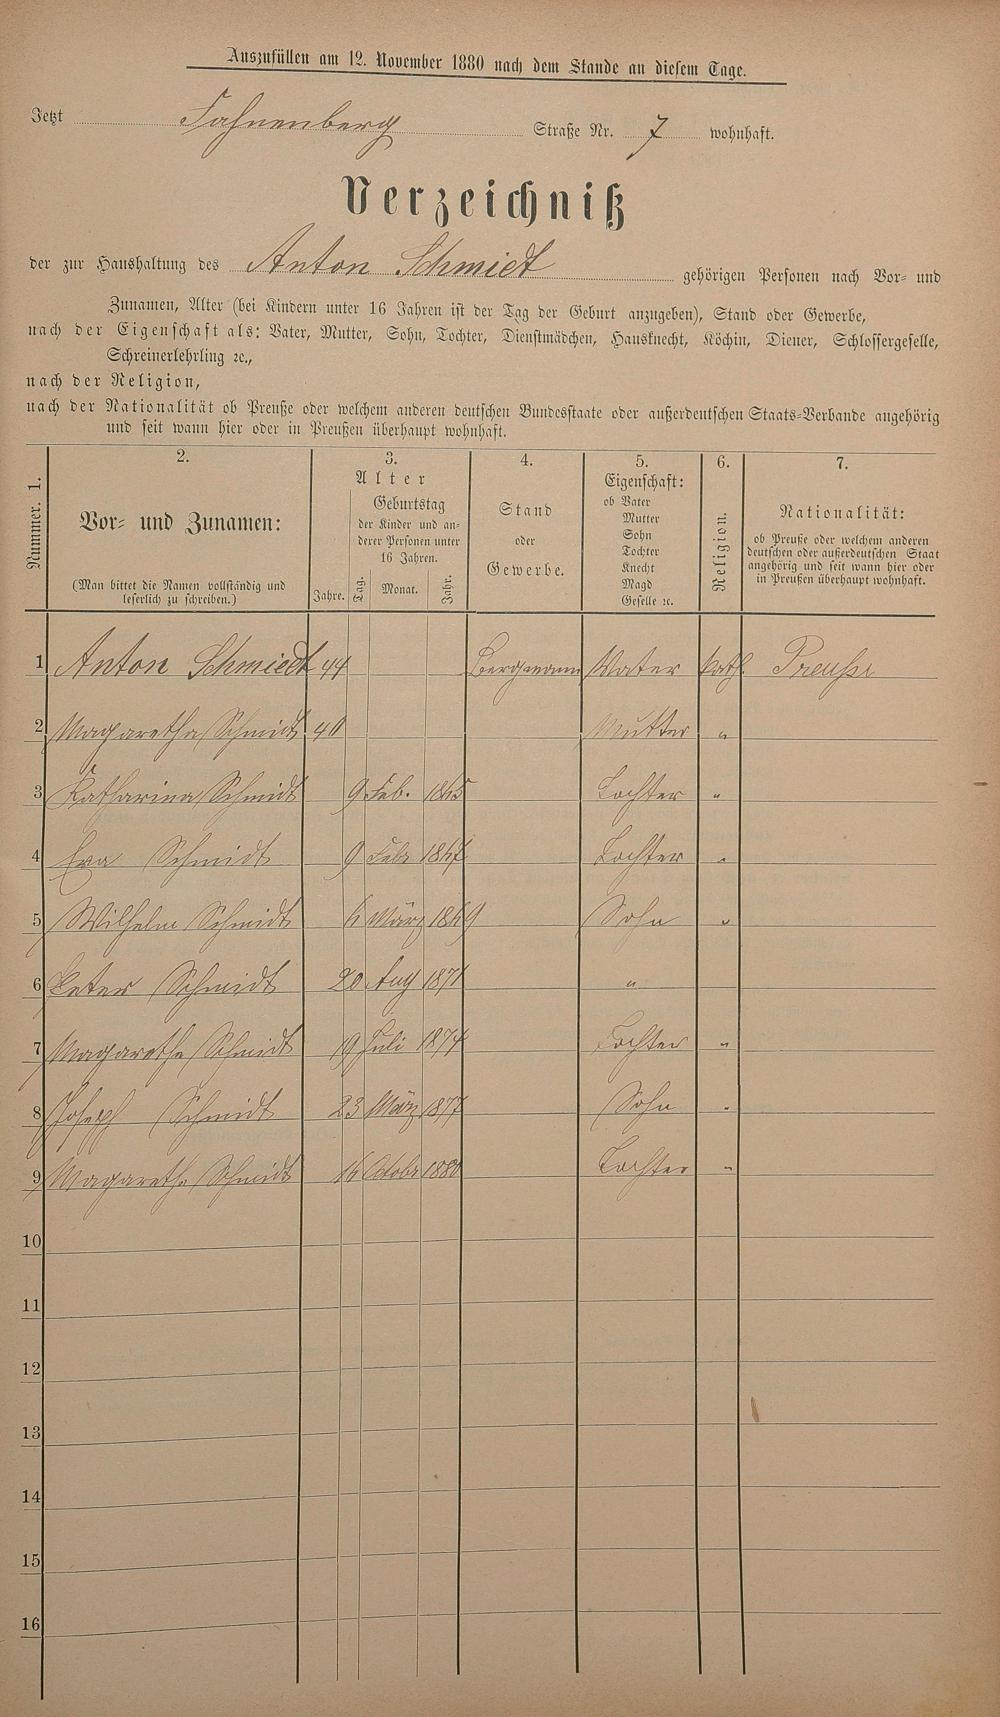 Auszufüllen am 12. November 1880 nach dem Stande an diesem Tage.
Jetzt Fahnenberg Straße Nr. 7 wohnhaft.
Verzeichniß
der zur Haushaltung des Anton Schmidt gehörigen Personen nach Vor- und
Zunamen, Alter (bei Kindern unter 16 Jahren ist der Tag der Geburt anzugeben), Stand oder Gewerbe,
nach der Eigenschaft als: Vater, Mutter, Sohn, Tochter, Dienstmädchen, Hausknecht, Köchin, Diener, Schlossergeselle,
Schreinerlehrling ꝛc.,
nach der Religion,
nach der Nationalität ob Preuße oder welchem anderen deutschen Bundesstaate oder außerdeutschen Staats-Verbande angehörig
und seit wann hier oder in Preußen überhaupt wohnhaft.
Nummer. 1.
2.
Vor- und Zunamen:
(Man bittet die Namen vollständig und
leserlich zu schreiben.)
3.
Alter
Geburtstag
der Kinder und an-
derer Personen unter
16 Jahren.
Jahre. Tag. Monat. Jahr.
4.
Stand
oder
Gewerbe.
5.
Eigenschaft:
ob Vater
Mutter
Sohn
Tochter
Knecht
Magd
Geselle ꝛc.
6.
Religion.
7.
Nationalität:
ob Preuße oder welchem anderen
deutschen oder außerdeutschen Staat
angehörig und seit wann hier oder
in Preußen überhaupt wohnhaft.
1 Anton Schmiedt 44 Bergmann Vater kath. Preuße
2 Magaretha Schmidt 40 Mutter "
3 Katharina Schmidt 9 Feb. 1865 Tochter "
4 Eva Schmidt 9 Febr 1867 Tochter "
5 Wilhelm Schmidt 6 März 1869 Sohn "
6 Peter Schmidt 20 Aug 1871 "
7 Magarethe Schmidt 19 Juli 1874 Tochter "
8 Joseph Schmidt 23 März 1877 Sohn "
9 Magarethe Schmidt 16 Octobr 1880 Tochter "
10
11
12
13
14
15
16